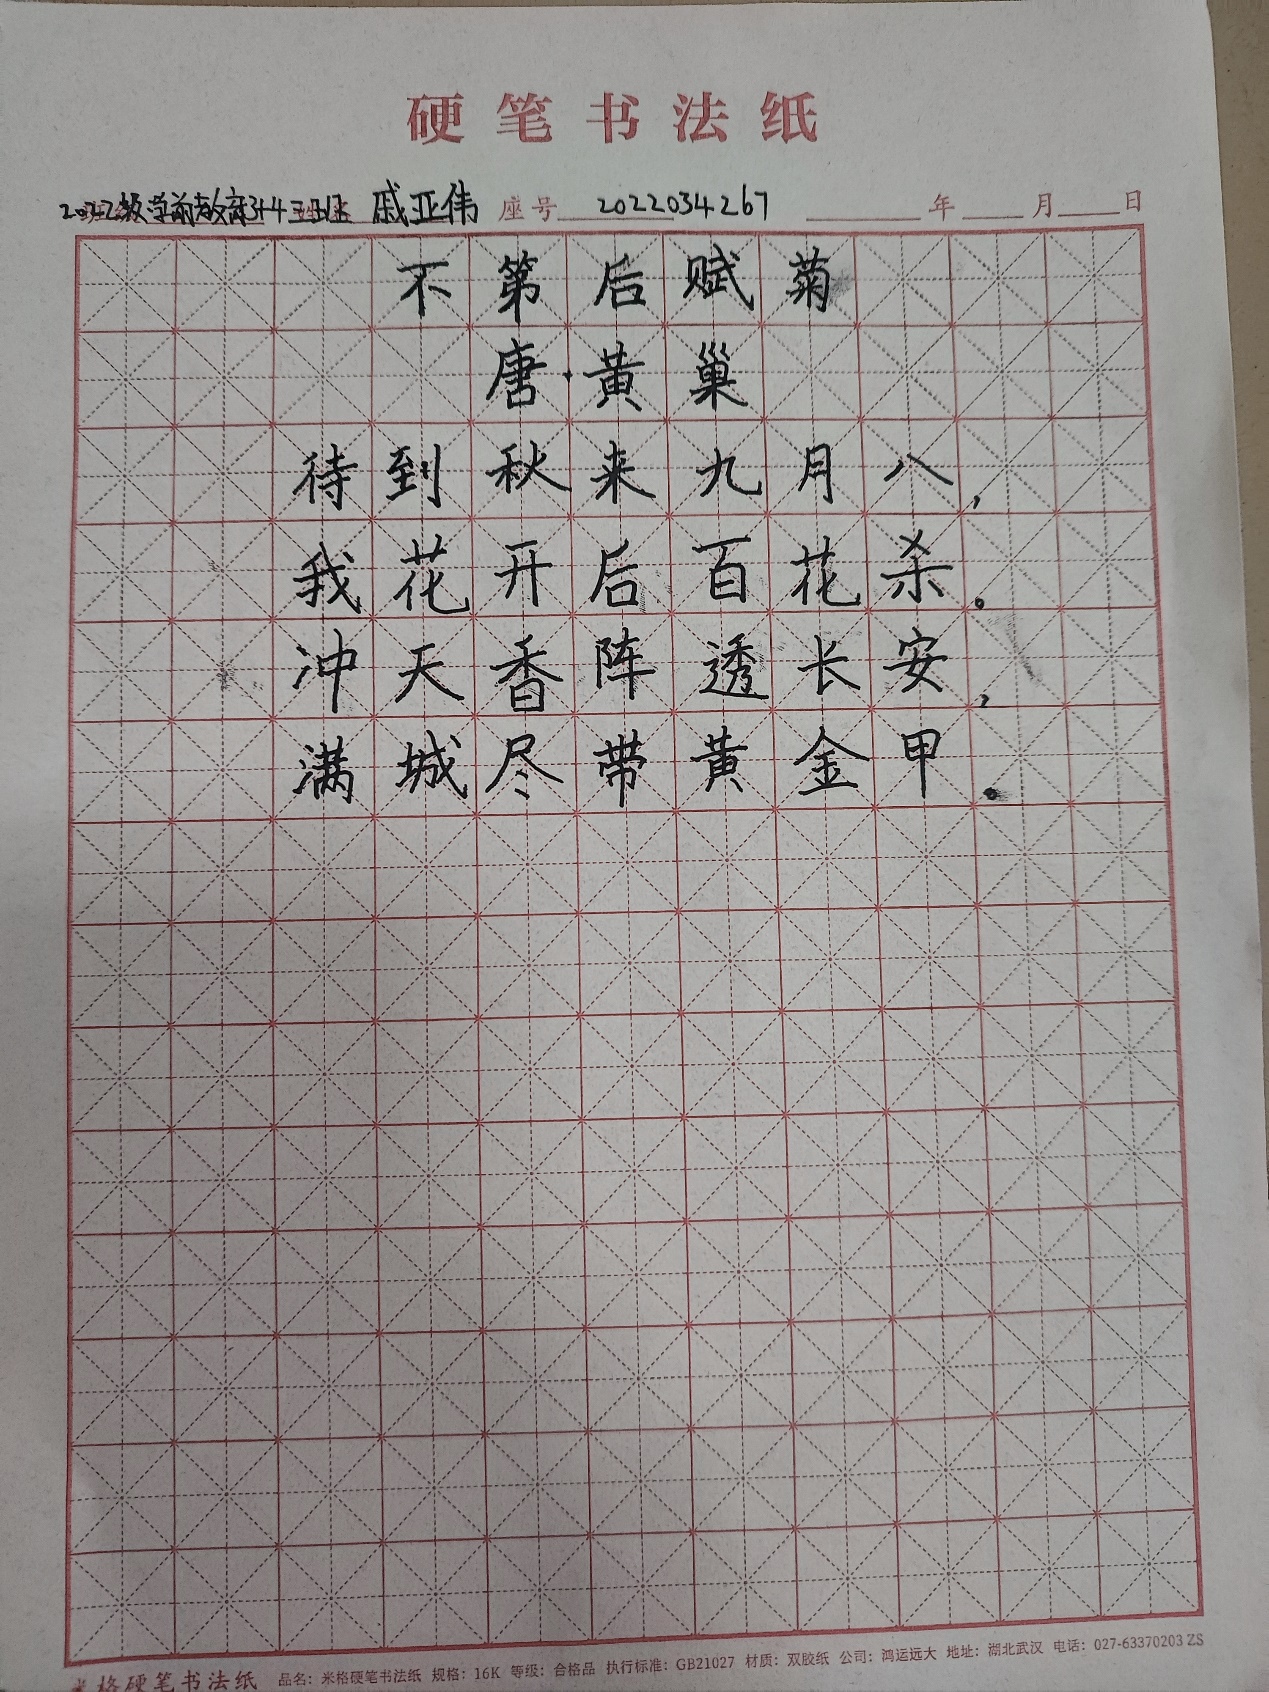 硬笔书法纸
2022级学前教育3+4三班 戚亚伟 座号 2022034267 年 月 日
不第后赋菊
唐·黄巢
待到秋来九月八，
我花开后百花杀。
冲天香阵透长安，
满城尽带黄金甲。
米格硬笔书法纸 品名：米格硬笔书法纸 规格：16K 等级：合格品 执行标准：GB21027 材质：双胶纸 公司：鸿运远大 地址：湖北武汉 电话：027-63370203 ZS